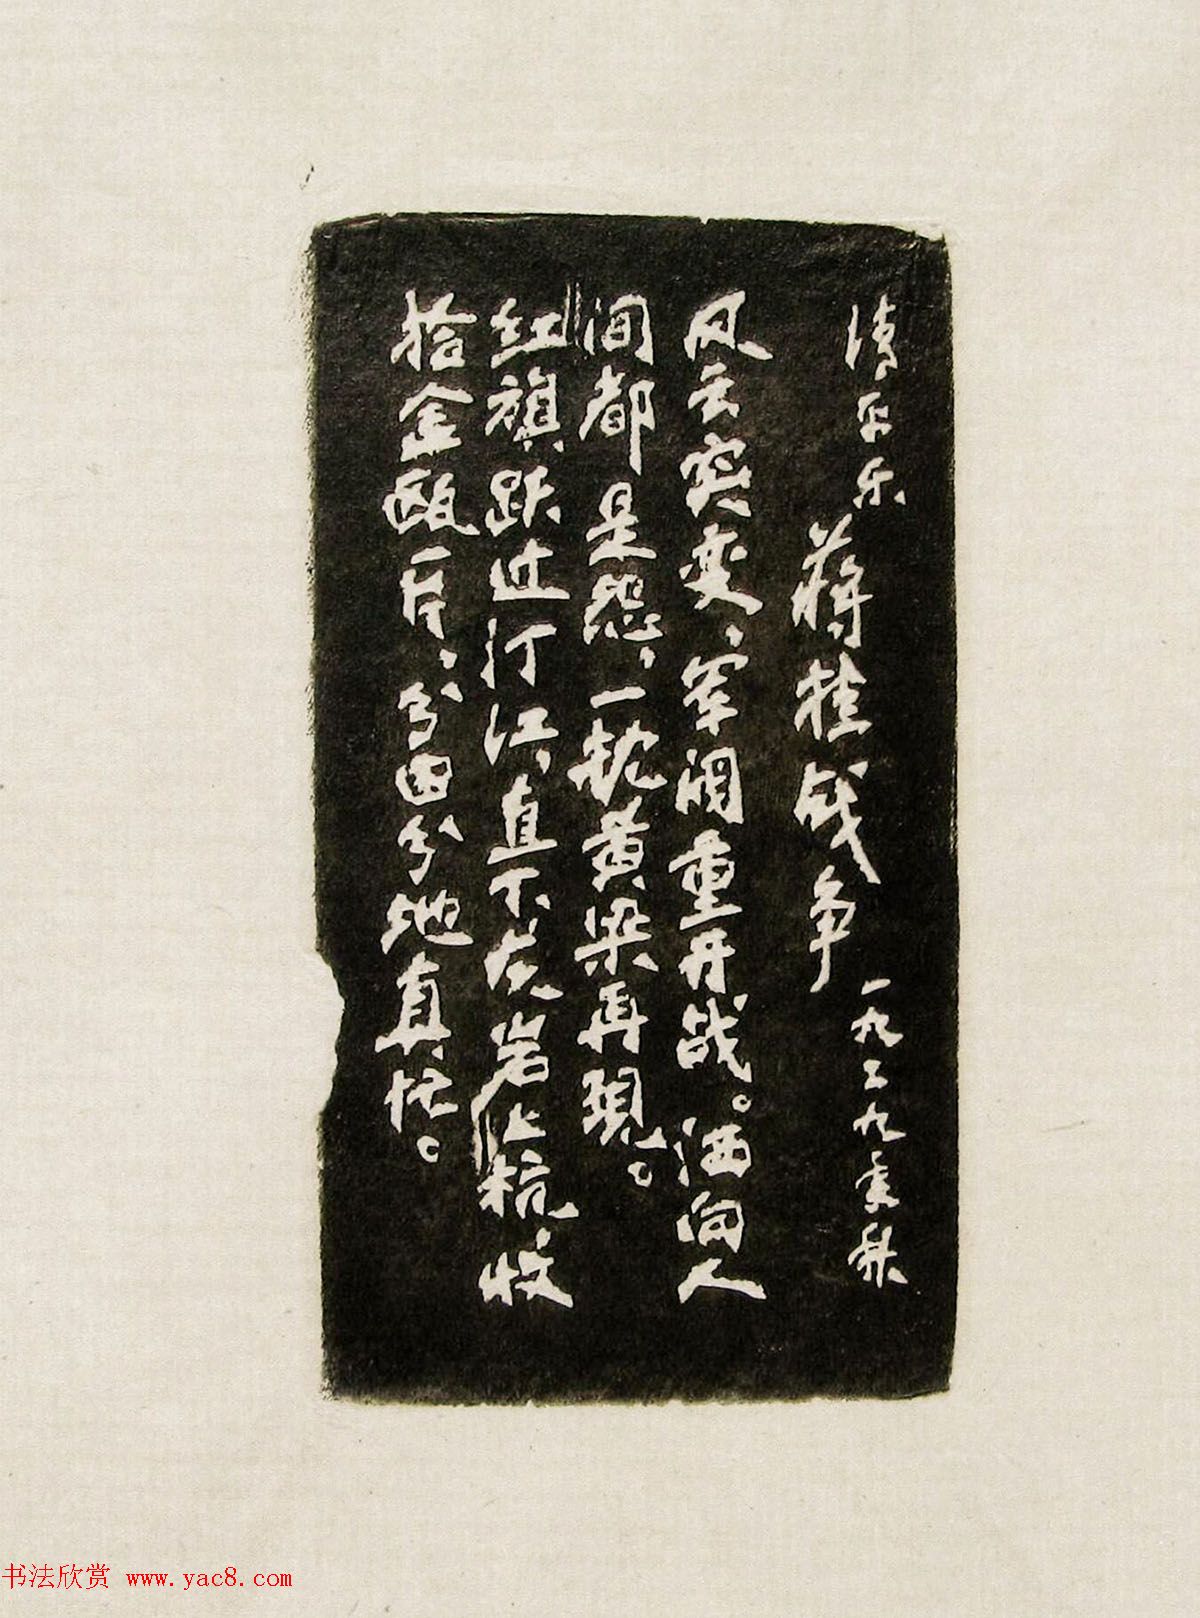 清平乐 蒋桂战争 一九二九年秋
风云突变，军阀重开战。洒向人
间都是怨，一枕黄粱再现。
红旗跃过汀江，直下龙岩上杭，收
拾金瓯一片，分田分地真忙。
书法欣赏 www.yac8.com